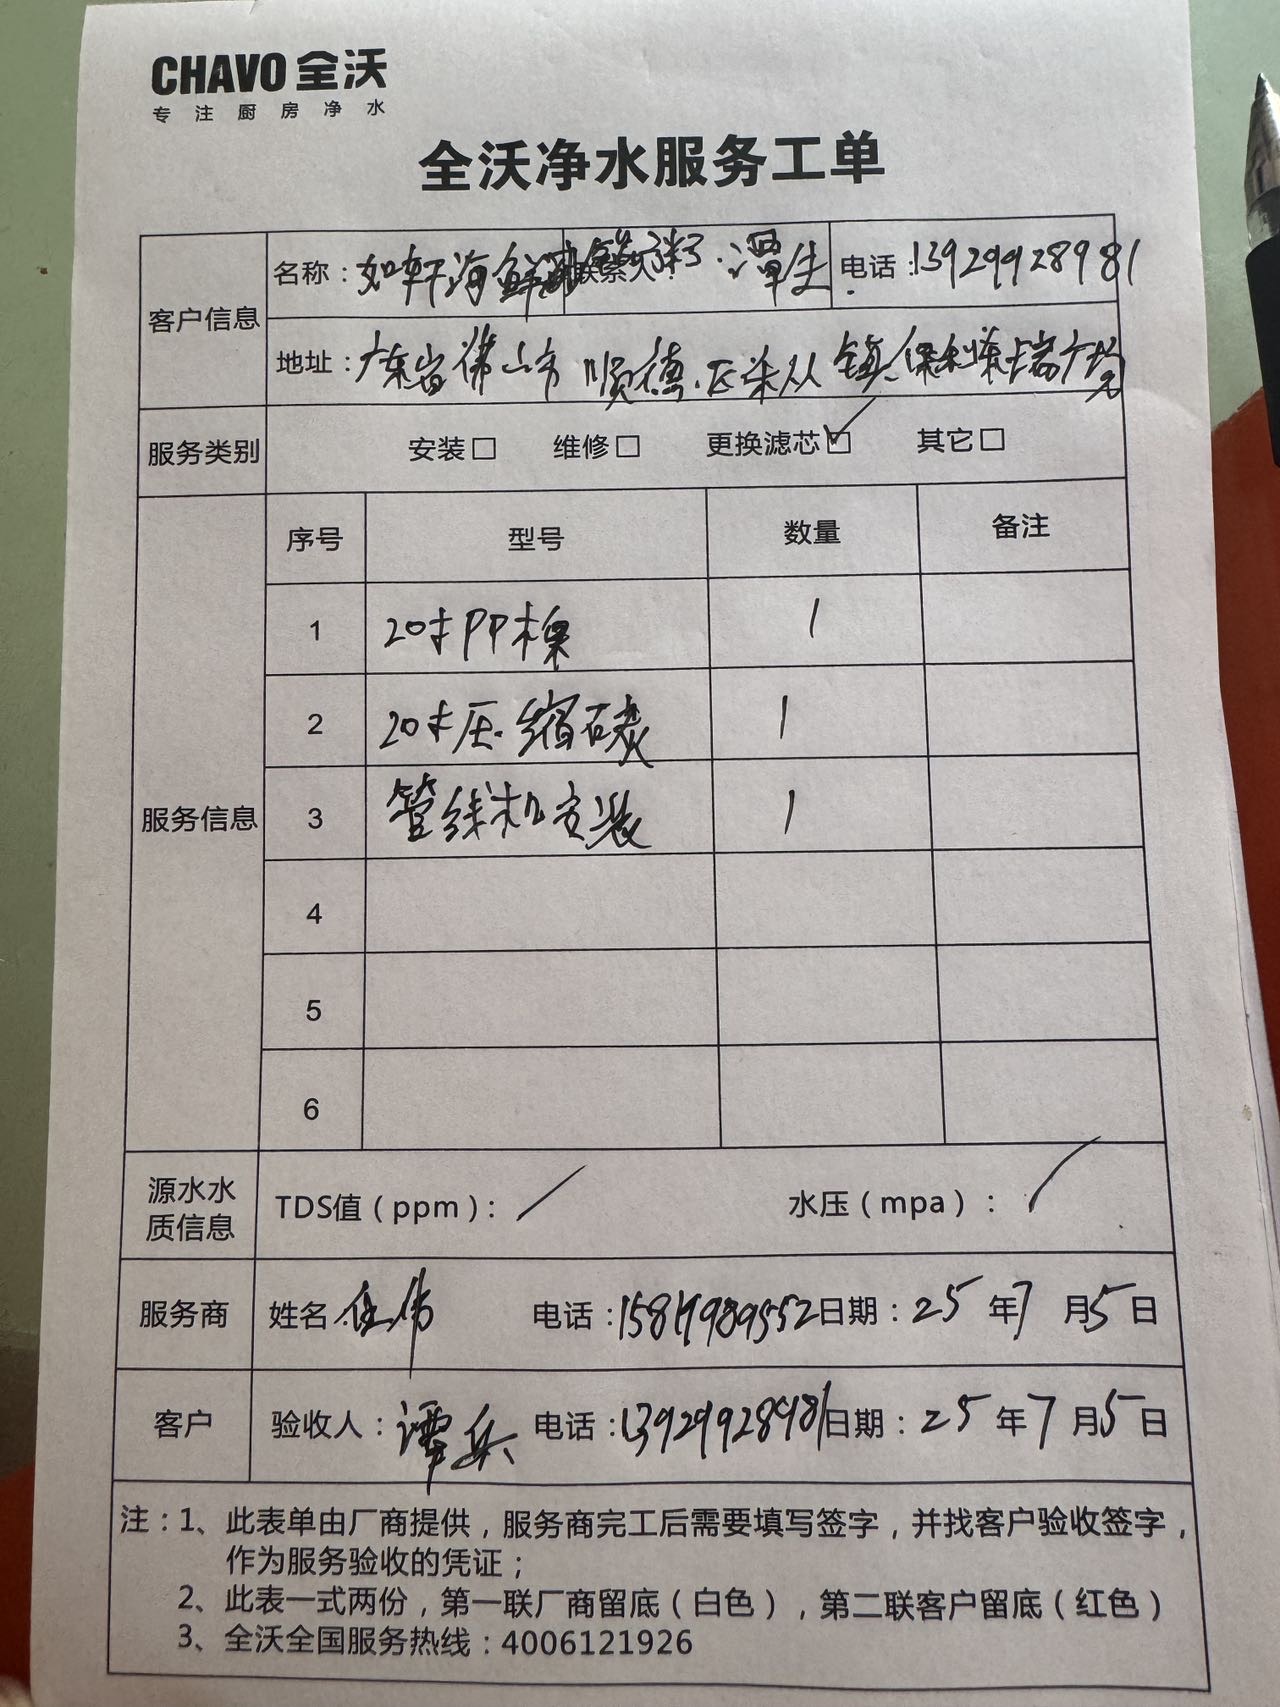 CHAVO 全沃
专注厨房净水
全沃净水服务工单
客户信息
名称：如轩海鲜砂锅粥 联系人：潭生 电话：13929928981
地址：广东省佛山市顺德区乐从镇保利东语广场
服务类别 安装□ 维修□ 更换滤芯☑ 其它□
服务信息
序号 型号 数量 备注
1 20寸PP棉 1
2 20寸压缩碳 1
3 管线机安装 1
4
5
6
源水水质信息 TDS值（ppm）：/ 水压（mpa）：/
服务商 姓名 伍伟 电话： 日期：25年7月5日
客户 验收人：谭兵 电话：13929928981 日期：25年7月5日
注：1、此表单由厂商提供，服务商完工后需要填写签字，并找客户验收签字，
作为服务验收的凭证；
2、此表一式两份，第一联厂商留底（白色），第二联客户留底（红色）
3、全沃全国服务热线：4006121926